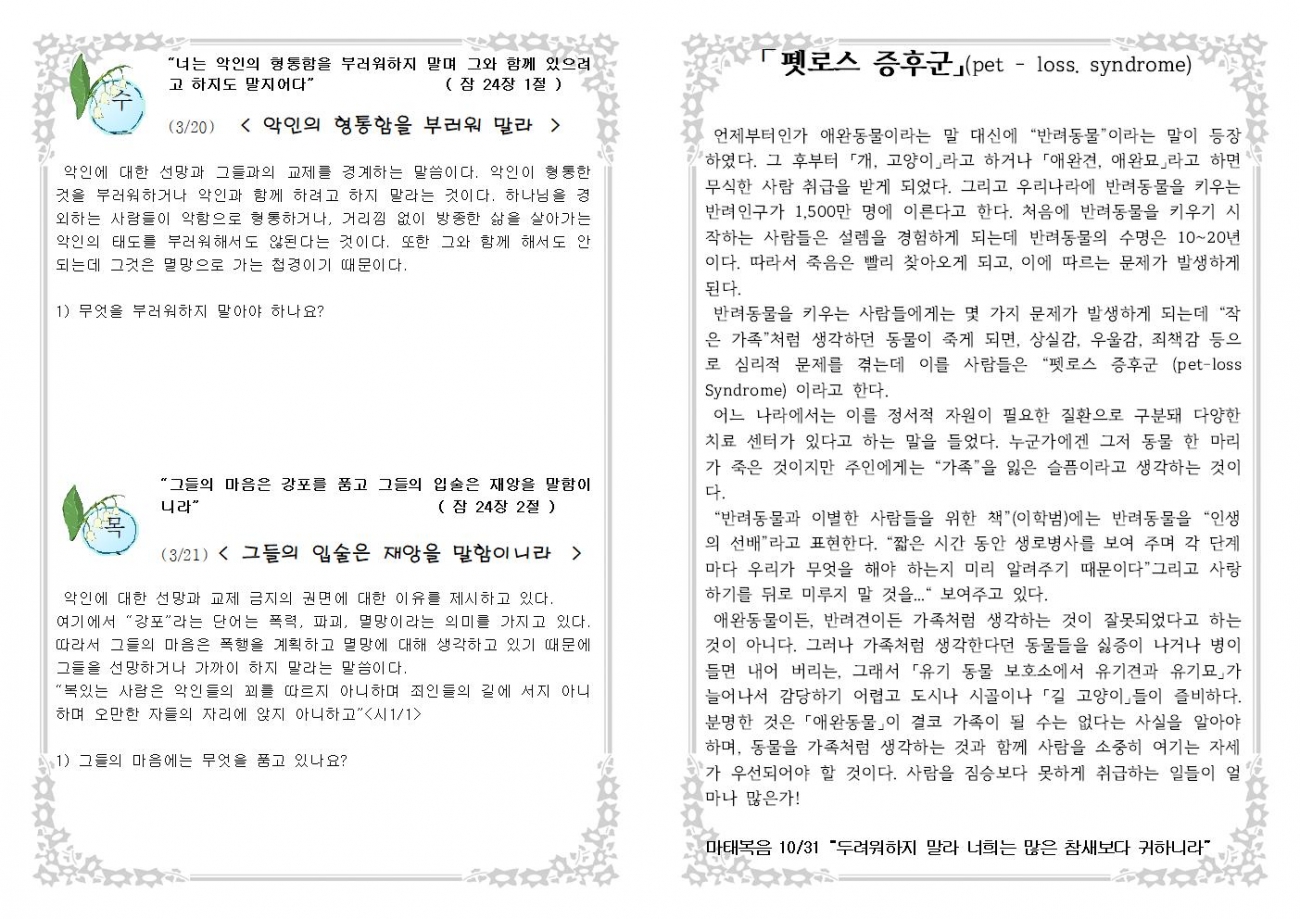 “너는 악인의 형통함을 부러워하지 말며 그와 함께 있으려
고 하지도 말지어다” ( 잠 24장 1절 )
수
(3/20) < 악인의 형통함을 부러워 말라 >
악인에 대한 선망과 그들과의 교제를 경계하는 말씀이다. 악인이 형통한
것을 부러워하거나 악인과 함께 하려고 하지 말라는 것이다. 하나님을 경
외하는 사람들이 악함으로 형통하거나, 거리낌 없이 방종한 삶을 살아가는
악인의 태도를 부러워해서도 않된다는 것이다. 또한 그와 함께 해서도 안
되는데 그것은 멸망으로 가는 첩경이기 때문이다.
1) 무엇을 부러워하지 말아야 하나요?
“그들의 마음은 강포를 품고 그들의 입술은 재앙을 말함이
니라” ( 잠 24장 2절 )
목
(3/21) < 그들의 입술은 재앙을 말함이니라 >
악인에 대한 선망과 교제 금지의 권면에 대한 이유를 제시하고 있다.
여기에서 “강포”라는 단어는 폭력, 파괴, 멸망이라는 의미를 가지고 있다.
따라서 그들의 마음은 폭행을 계획하고 멸망에 대해 생각하고 있기 때문에
그들을 선망하거나 가까이 하지 말라는 말씀이다.
“복있는 사람은 악인들의 꾀를 따르지 아니하며 죄인들의 길에 서지 아니
하며 오만한 자들의 자리에 앉지 아니하고”<시1/1>
1) 그들의 마음에는 무엇을 품고 있나요?
「펫로스 증후군」(pet - loss. syndrome)
언제부터인가 애완동물이라는 말 대신에 “반려동물”이라는 말이 등장
하였다. 그 후부터 「개, 고양이」라고 하거나 「애완견, 애완묘」라고 하면
무식한 사람 취급을 받게 되었다. 그리고 우리나라에 반려동물을 키우는
반려인구가 1,500만 명에 이른다고 한다. 처음에 반려동물을 키우기 시
작하는 사람들은 설렘을 경험하게 되는데 반려동물의 수명은 10~20년
이다. 따라서 죽음은 빨리 찾아오게 되고, 이에 따르는 문제가 발생하게
된다.
반려동물을 키우는 사람들에게는 몇 가지 문제가 발생하게 되는데 “작
은 가족”처럼 생각하던 동물이 죽게 되면, 상실감, 우울감, 죄책감 등으
로 심리적 문제를 겪는데 이를 사람들은 “펫로스 증후군 (pet-loss
Syndrome) 이라고 한다.
어느 나라에서는 이를 정서적 자원이 필요한 질환으로 구분돼 다양한
치료 센터가 있다고 하는 말을 들었다. 누군가에겐 그저 동물 한 마리
가 죽은 것이지만 주인에게는 “가족”을 잃은 슬픔이라고 생각하는 것이
다.
“반려동물과 이별한 사람들을 위한 책”(이학범)에는 반려동물을 “인생
의 선배”라고 표현한다. “짧은 시간 동안 생로병사를 보여 주며 각 단계
마다 우리가 무엇을 해야 하는지 미리 알려주기 때문이다”그리고 사랑
하기를 뒤로 미루지 말 것을...“ 보여주고 있다.
애완동물이든, 반려견이든 가족처럼 생각하는 것이 잘못되었다고 하는
것이 아니다. 그러나 가족처럼 생각한다던 동물들을 싫증이 나거나 병이
들면 내어 버리는, 그래서 「유기 동물 보호소에서 유기견과 유기묘」가
늘어나서 감당하기 어렵고 도시나 시골이나 「길 고양이」들이 즐비하다.
분명한 것은 「애완동물」이 결코 가족이 될 수는 없다는 사실을 알아야
하며, 동물을 가족처럼 생각하는 것과 함께 사람을 소중히 여기는 자세
가 우선되어야 할 것이다. 사람을 짐승보다 못하게 취급하는 일들이 얼
마나 많은가!
마태복음 10/31 “두려워하지 말라 너희는 많은 참새보다 귀하니라”